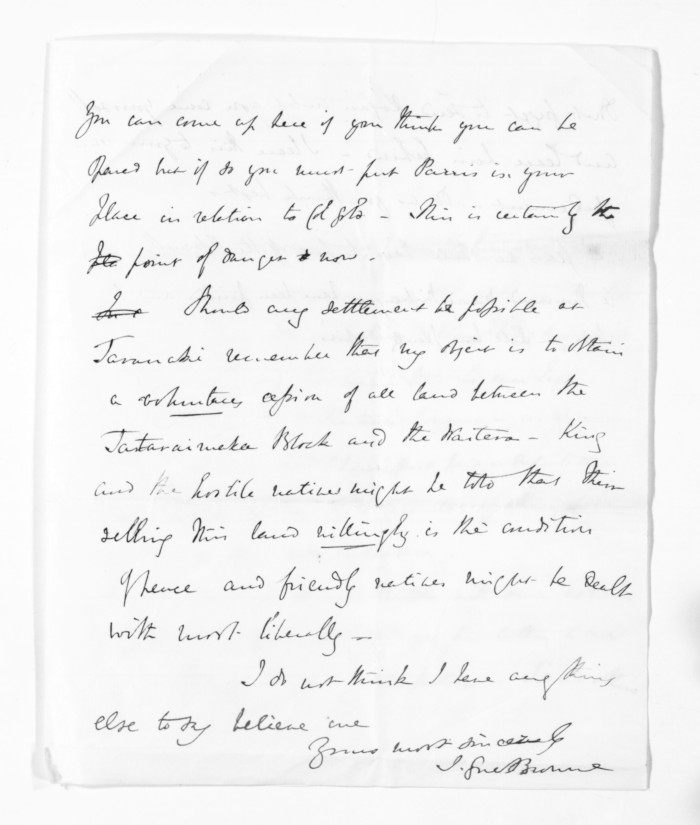 You can come up here if you think you can be
spared but if so you must put Parris in your
place in relation to Col Gold – This is certainly the
point of danger now.
Should any settlement be possible at
Taranaki remember that my object is to obtain
a voluntary cession of all land between the
Tataraimaka Block and the Waitera – King
and the hostile natives might be told that their
selling this land willingly is the condition
of peace and friendly natives might be dealt
with most liberally –
I do not think I have anything
else to say believe me
Yours most sincerely
T. Gore Browne